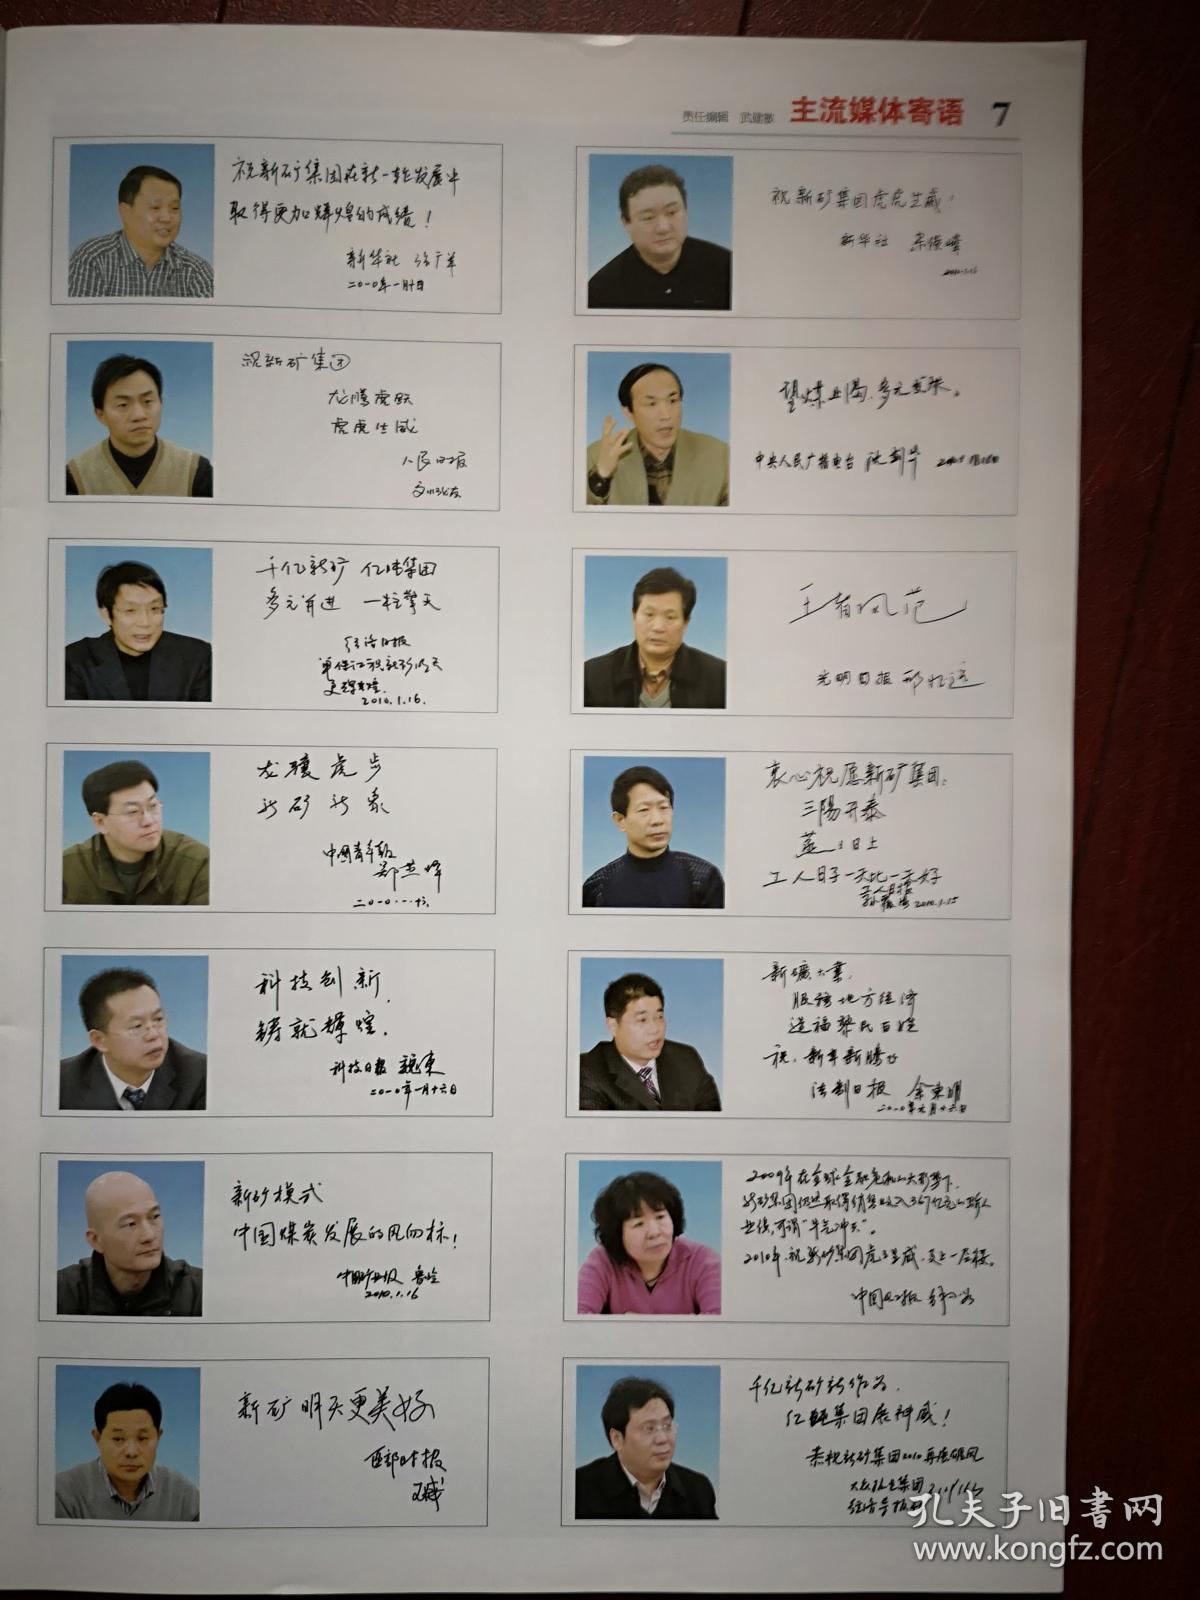 责任编辑 武建敏 主流媒体寄语 7
祝新矿集团在新一轮发展中
取得更加辉煌的成绩！
新华社
二〇一〇年一月十日
祝新矿集团虎虎生威！
新华社
2010.1.16
祝新矿集团
龙腾虎跃
虎虎生威
人民日报
望煤止渴，多元
中央人民广播电台
千亿新矿 亿吨集团
多元前进 一柱擎天
经济日报
更辉煌。
2010.1.16.
王者风范
光明日报
龙骧虎步
新矿新象
中国青年报
郑燕峰
二〇一〇.一.十六.
衷心祝愿新矿集团：
三陽开泰
蒸蒸日上
工人日子一天比一天好
工人日报
2010.1.15
科技创新，
铸就辉煌。
科技日报 魏东
二〇一〇年一月十六日
新礦大業，
服務地方经济
造福黎民百姓
祝：新年新腾飞
法制日报 余东明
二〇一〇年元月十六日
新矿模式
中国煤炭发展的风向标！
中国矿业报
2010.1.16
2009年在全球金融危机的大形势下，
新矿集团仍然取得销售收入367亿元的骄人
业绩，可谓“牛气冲天”。
2010年，祝新矿集团虎虎生威，更上一层楼。
中国日报
新矿明天更美好
西部时报
王成
千亿新矿新作为，
亿吨集团展神威！
恭祝新矿集团2010再展雄风
大众报业集团
经济导报
孔夫子旧书网
www.kongfz.com